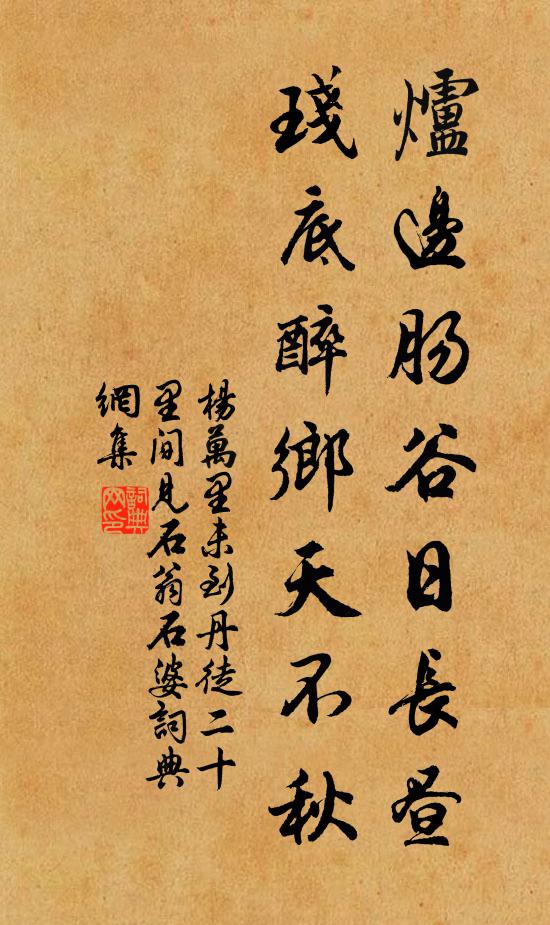 爐邊腸谷日長昼
琖底醉鄉天不秋
楊萬里未到丹徒二十
里間見石翁石婆詞典
網集
詞典网印